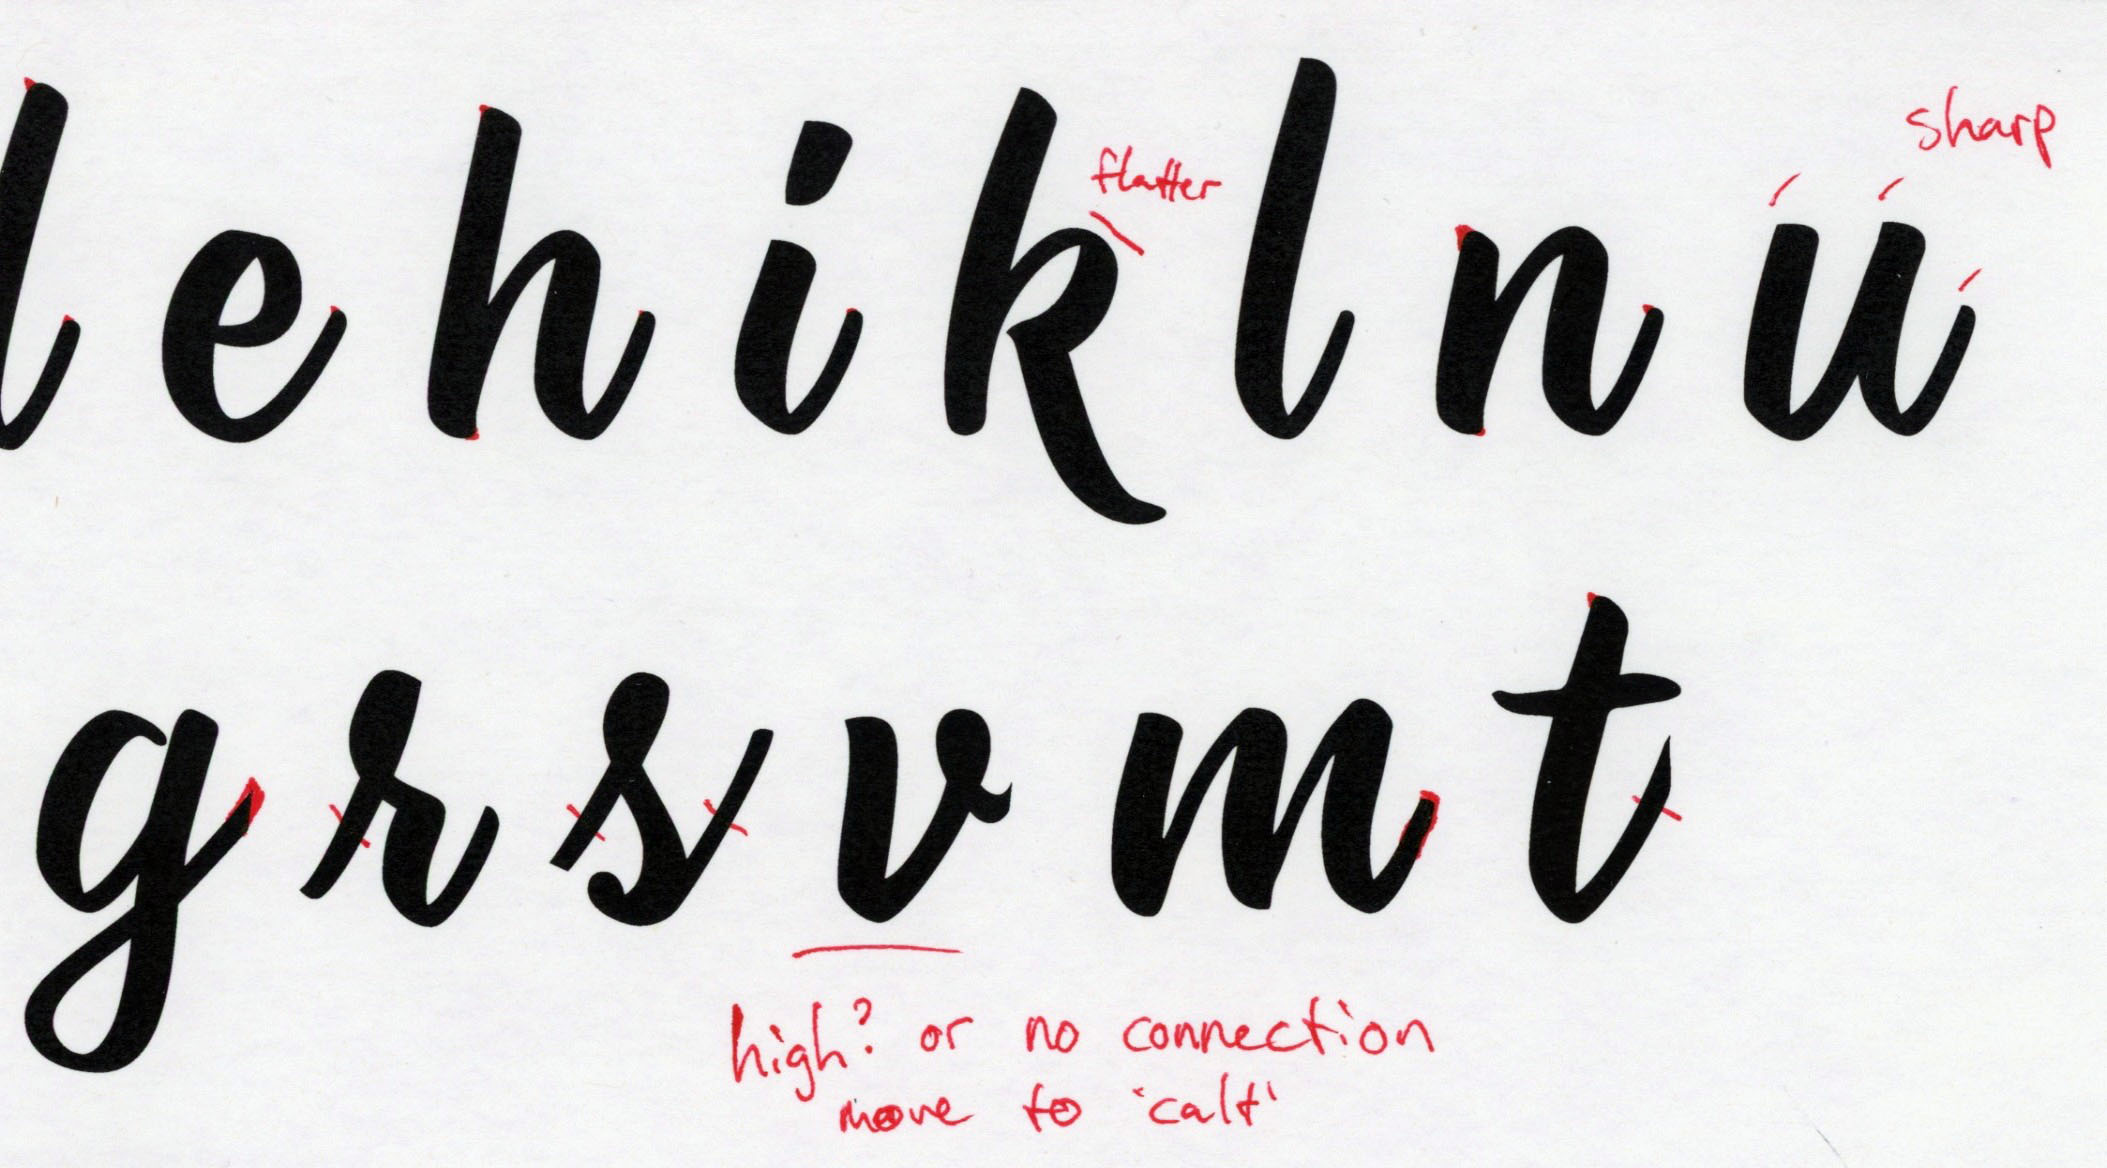 sharp
flatter
e h i k l n u
g r s v m t
high? or no connection
move to 'calt'